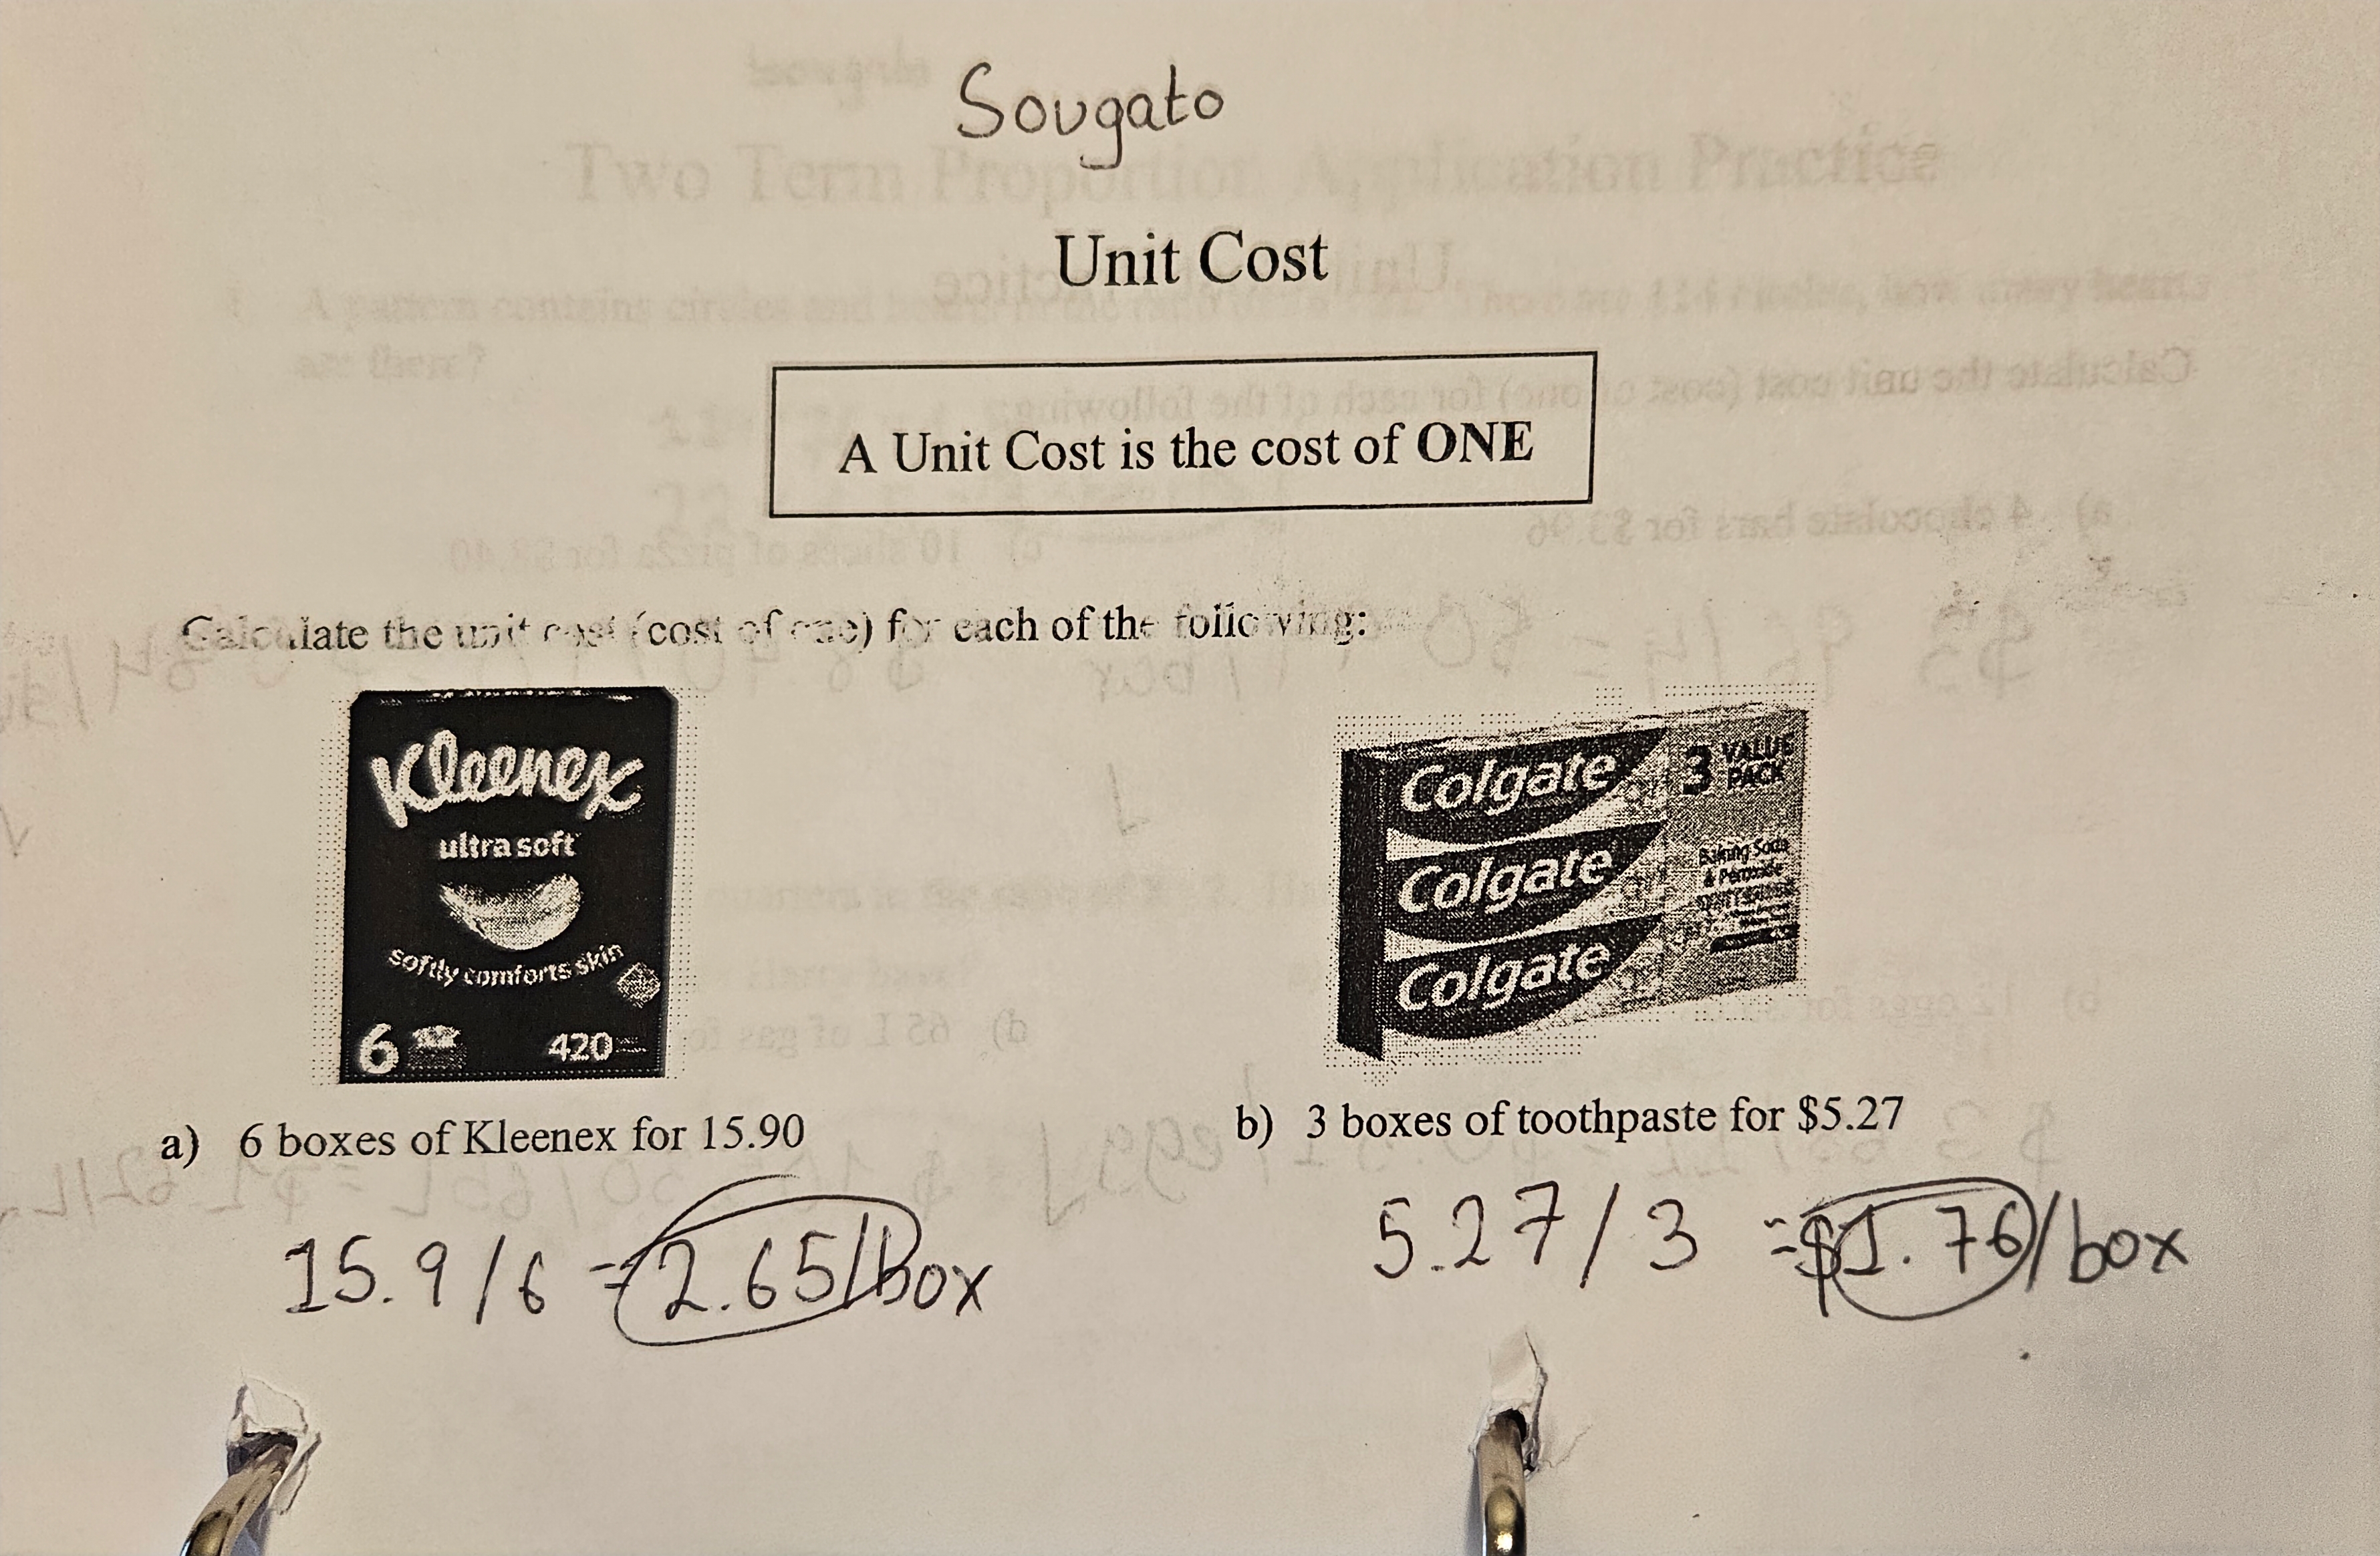 Sougato
Unit Cost
A Unit Cost is the cost of ONE
Calculate the unit cost (cost of one) for each of the following:
Kleenex
ultra soft
softly comforts skin
6 420
Colgate
Colgate
Colgate
3 VALUE
PACK
Baking Soda
& Peroxide
a) 6 boxes of Kleenex for 15.90
15.9/6 = 2.65/box
b) 3 boxes of toothpaste for $5.27
5.27/3 = $1.76/box